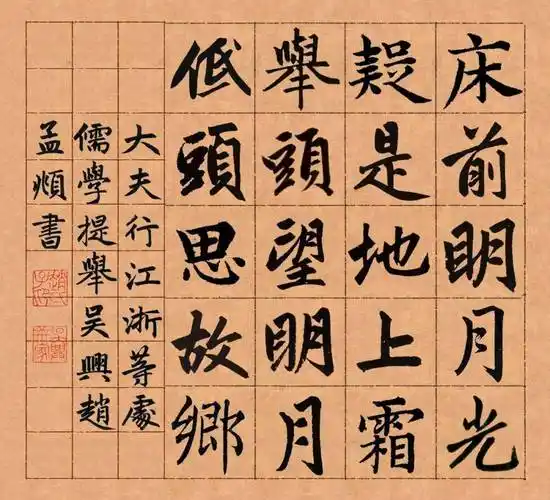 床前明月光
疑是地上霜
舉頭望明月
低頭思故鄉
大夫行江浙等處
儒學提舉吳興趙
孟頫書